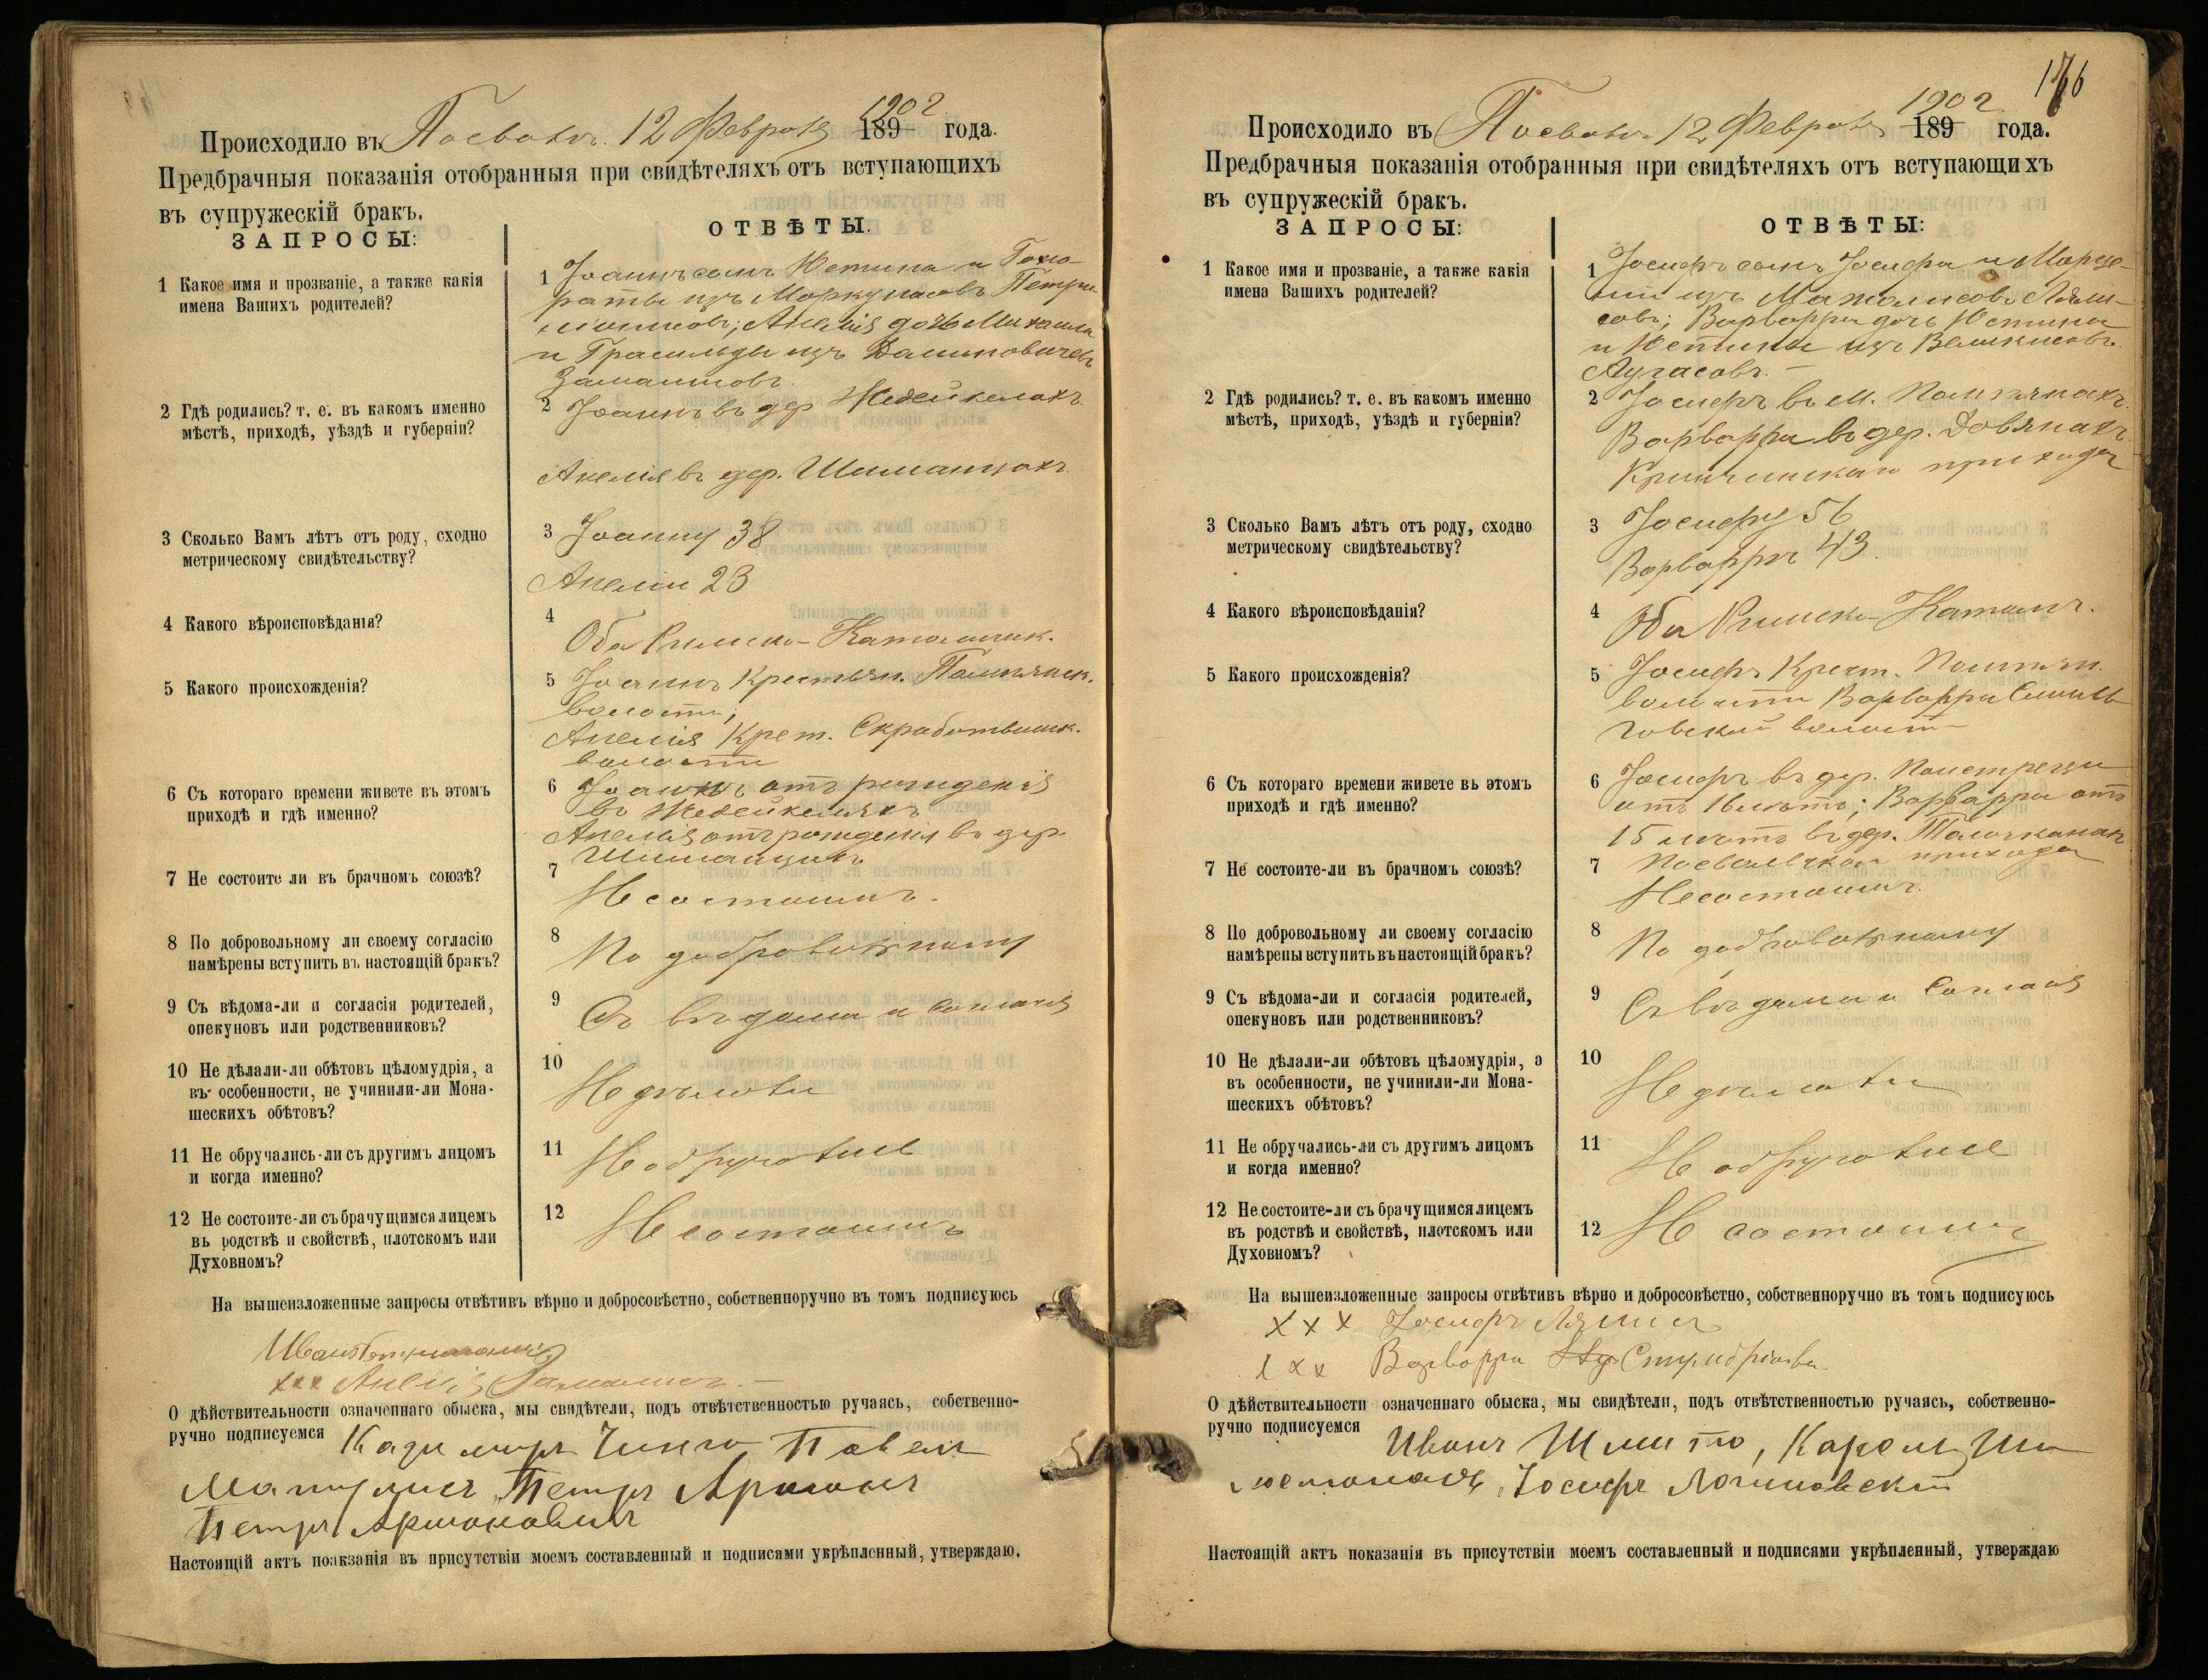 1902
Происходило въ Посволь. 12 Февраля 189 года.
Предбрачныя показанія отобранныя при свидѣтеляхъ отъ вступающихъ
въ супружескій бракъ.
ЗАПРОСЫ:
ОТВѢТЫ.
1 Какое имя и прозваніе, а также какія
имена Вашихъ родителей?
1 Іоаннъ сынъ Юстина и
изъ Моркунасовъ
Анелія дочь Михаила
и Гразильды изъ Дашкевичевъ
2 Гдѣ родились? т. е. въ какомъ именно
мѣстѣ, приходѣ, уѣздѣ и губерніи?
2 Іоаннъ въ дер Жедейкеляхъ
Анелія въ дер. Шиманцахъ
3 Сколько Вамъ лѣтъ отъ роду, сходно
метрическому свидѣтельству?
3 Іоанну 38
Анеліи 23
4 Какого вѣроисповѣданія?
4
Оба Римско-Католик.
5 Какого происхожденія?
5 Іоаннъ Крестьян. Помпянск.
волости;
Анелія Крест. Скработишк.
волости
6 Съ котораго времени живете въ этомъ
приходѣ и гдѣ именно?
6 Іоаннъ отъ рожденія
въ Жедейкеляхъ
Анелія отъ рожденія въ дер.
Шиманцахъ
7 Не состоите ли въ брачномъ союзѣ?
7
Не состоимъ.
8 По добровольному ли своему согласію
намѣрены вступить въ настоящій бракъ?
8
По добровольному
9 Съ вѣдома-ли и согласія родителей,
опекуновъ или родственниковъ?
9
Съ вѣдома и согласія
10 Не дѣлали-ли обѣтовъ цѣломудрія, а
въ особенности, не учинили-ли Мона-
шескихъ обѣтовъ?
10
Не дѣлали
11 Не обручались-ли съ другимъ лицомъ
и когда именно?
11
Не обручались
12 Не состоите-ли съ брачущимся лицемъ
въ родствѣ и свойствѣ, плотскомъ или
Духовномъ?
12
Не состоимъ
На вышеизложенные запросы отвѣтивъ вѣрно и добросовѣстно, собственноручно въ томъ подписуюсь
Иванъ
xxx Анелія
О дѣйствительности означеннаго обыска, мы свидѣтели, подъ отвѣтственностью ручаясь, собственно-
ручно подписуемся Казимиръ Павелъ
Матулисъ Петръ
Петръ
Настоящій актъ поакзанія въ присутствіи моемъ составленный и подписями укрѣпленный, утверждаю.
176
1902
Происходило въ Посволь 12 Февраля 189 года.
Предбрачныя показанія отобранныя при свидѣтеляхъ отъ вступающихъ
въ супружескій бракъ.
ЗАПРОСЫ:
ОТВѢТЫ:
1 Какое имя и прозваніе, а также какія
имена Вашихъ родителей?
1 Іосифъ сынъ Іосифа и Марце-
изъ
Варвара дочь Юстина
и Юстины изъ
2 Гдѣ родились? т. е. въ какомъ именно
мѣстѣ, приходѣ, уѣздѣ и губерніи?
2 Іосифъ въ м. Помпянахъ
Варвара въ дер. Довянахъ
Кринчинскаго прихода
3 Сколько Вамъ лѣтъ отъ роду, сходно
метрическому свидѣтельству?
3 Іосифу 56
Варварѣ 43.
4 Какого вѣроисповѣданія?
4
Оба Римско-Католич.
5 Какого происхожденія?
5 Іосифъ Крест. Помпян.
волости Варвара Смиль-
говской волости
6 Съ котораго времени живете въ этомъ
приходѣ и гдѣ именно?
6 Іосифъ въ дер.
отъ 16 лѣтъ; Варвара отъ
15 лѣтъ въ дер. Толочканахъ
Посвольскаго прихода
7 Не состоите-ли въ брачномъ союзѣ?
7
Не состоимъ.
8 По добровольному ли своему согласію
намѣрены вступить въ настоящій бракъ?
8
По добровольному
9 Съ вѣдома-ли и согласія родителей,
опекуновъ или родственниковъ?
9
Съ вѣдома и согласія
10 Не дѣлали-ли обѣтовъ цѣломудрія, а
въ особенности, не учинили-ли Мона-
шескихъ обѣтовъ?
10
Не дѣлали
11 Не обручались-ли съ другимъ лицомъ
и когда именно?
11
Не обручались
12 Не состоите-ли съ брачущимся лицемъ
въ родствѣ и свойствѣ, плотскомъ или
Духовномъ?
12 Не состоимъ
На вышеизложенные запросы отвѣтивъ вѣрно и добросовѣстно, собственноручно въ томъ подписуюсь
xxx Іосифъ
xxx Варвара
О дѣйствительности означеннаго обыска, мы свидѣтели, подъ отвѣтственностью ручаясь, собственно-
ручно подписуемся
Иванъ
Іосифъ
Настоящій актъ показанія въ присутствіи моемъ составленный и подписями укрѣпленный, утверждаю